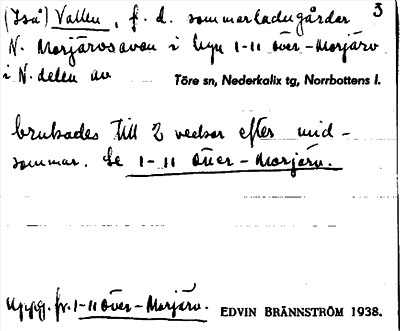 3
(Iså) Vallen, f. d. sommarladugårdar
N. Morjärvsavan i byn 1-11 över-Morjärv
i N. delen av Töre sn, Nederkalix tg, Norrbottens l.
brukades till 2 veckor efter mid-
sommar. Se 1-11 över-Morjärv.
Uppg. fr. 1-11 över-Morjärv. EDVIN BRÄNNSTRÖM 1938.